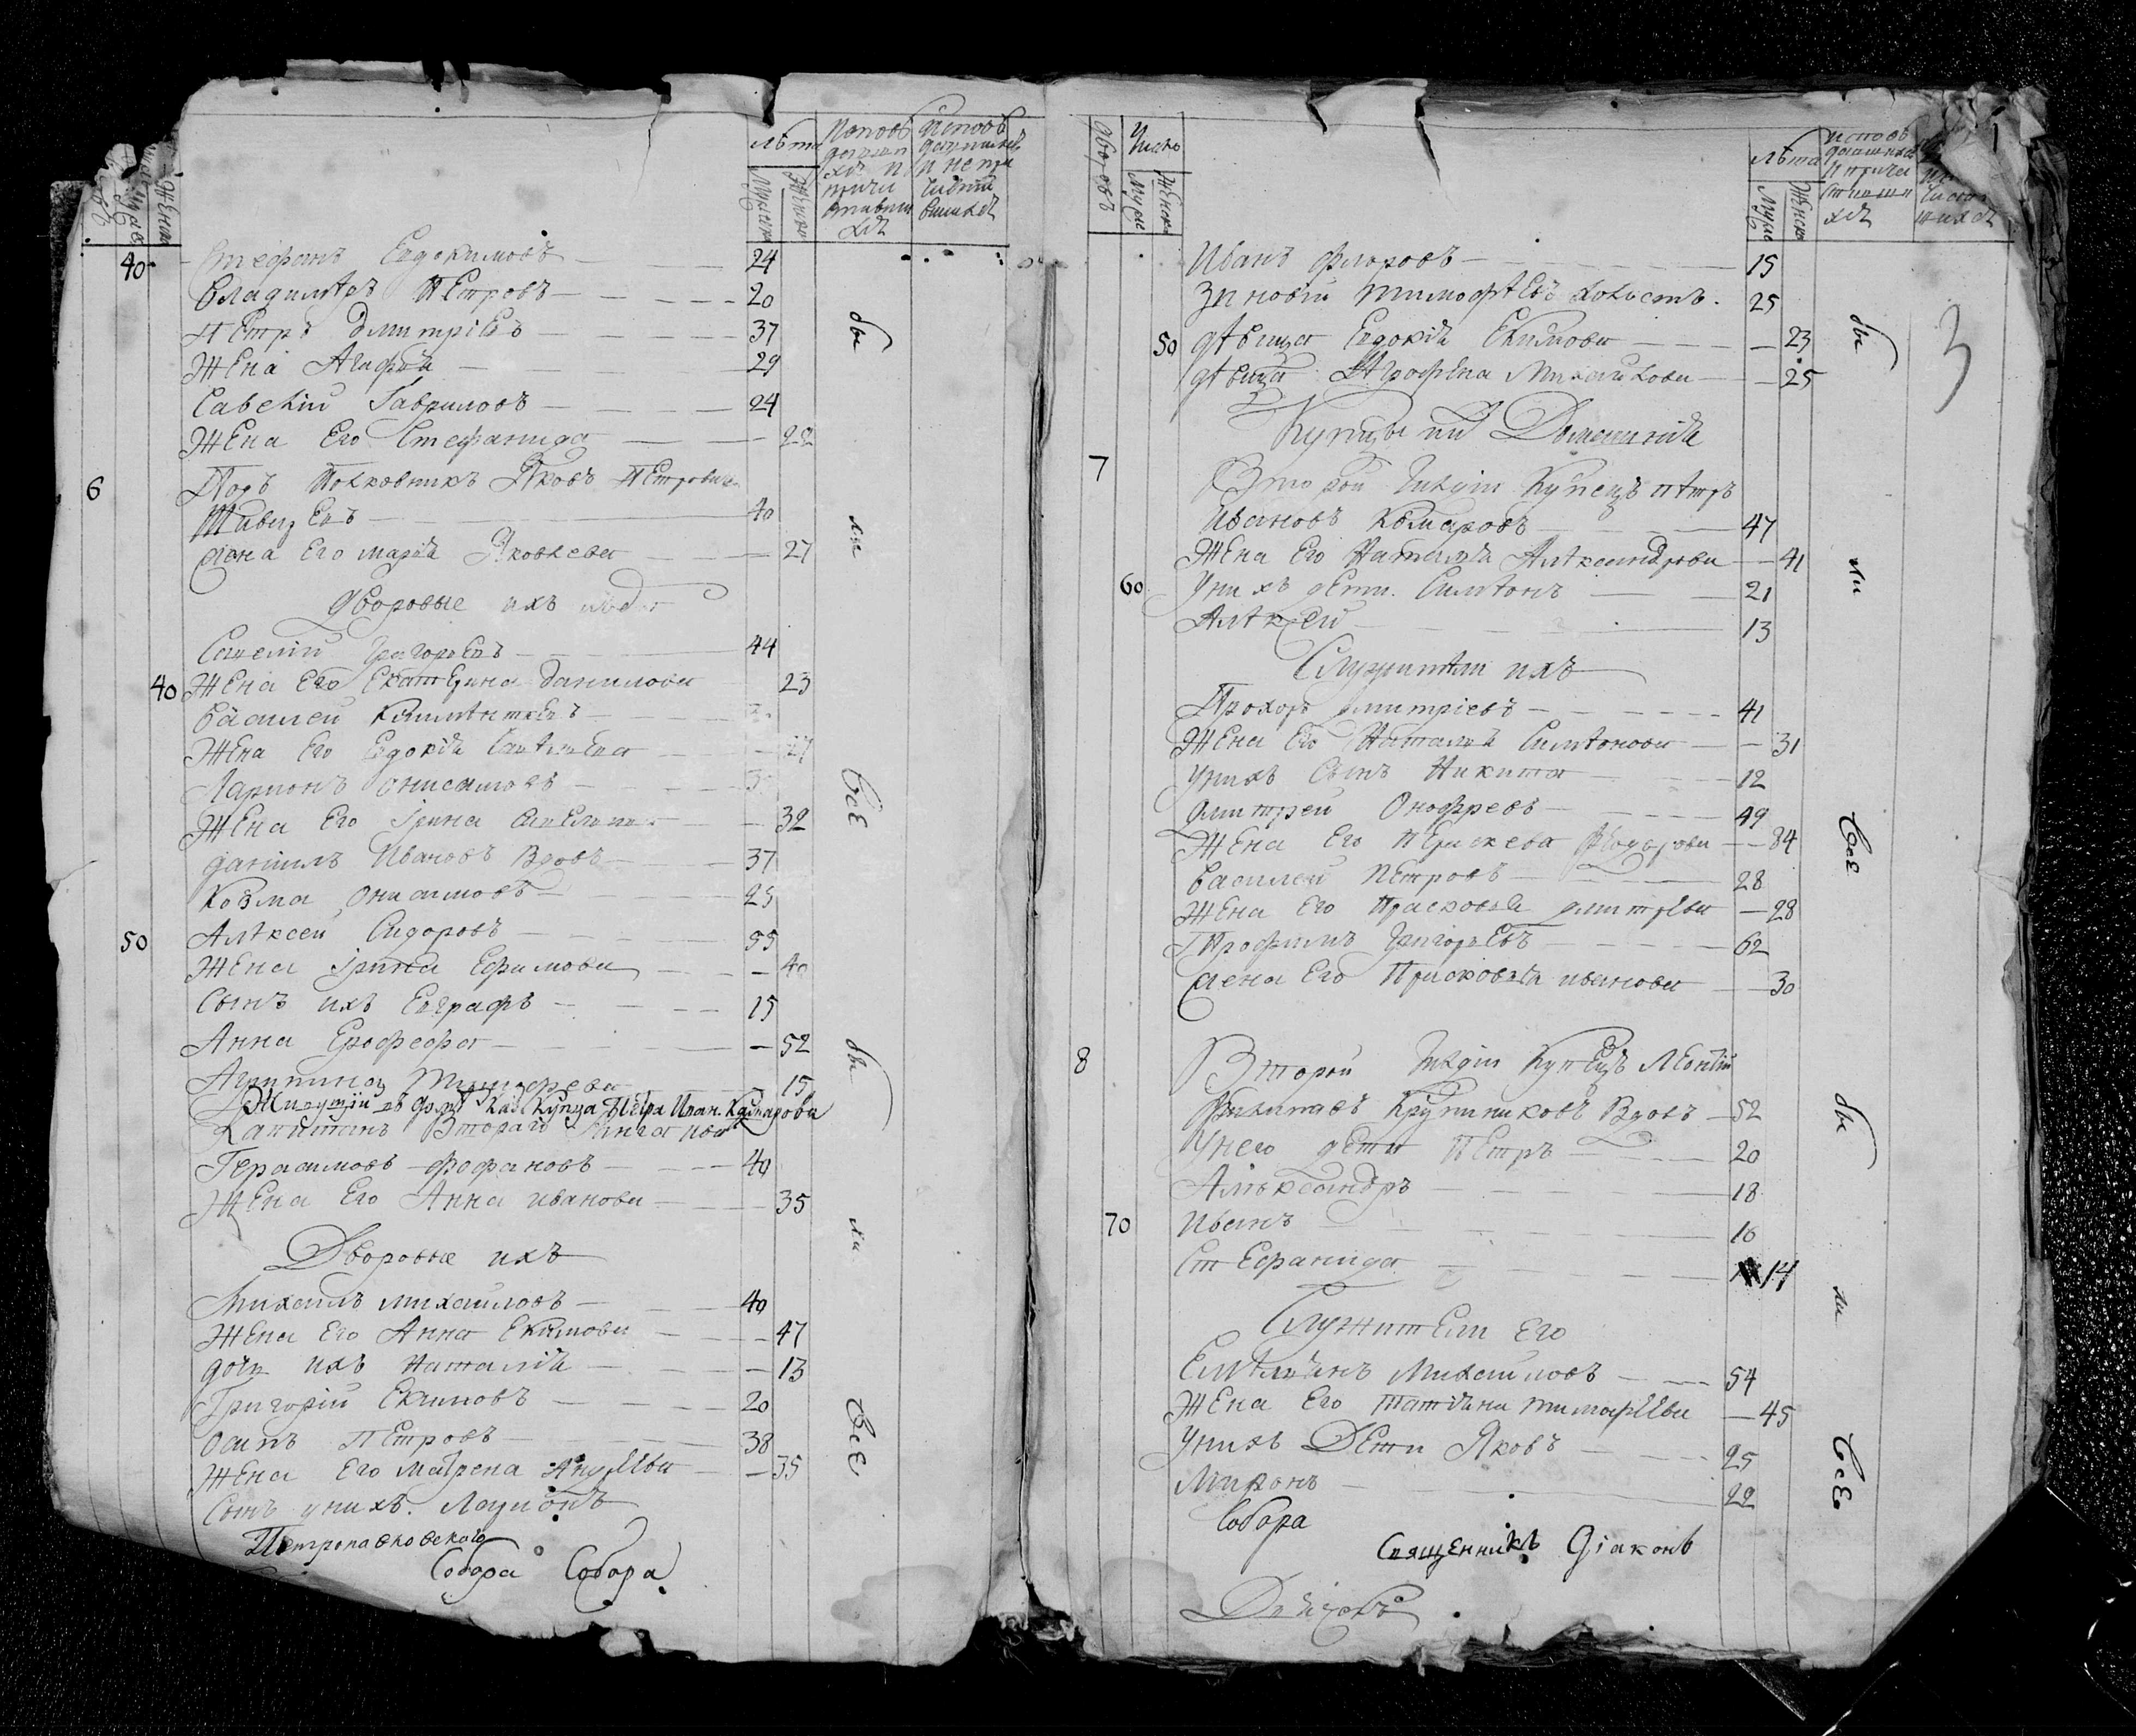 лѣта
Мужска
Женска
40 Стефанъ Евдокимовъ 24
Владимiръ Петровъ 20
Петръ Дмитрiевъ 37
Жена Агафiя 29
Савелий Гавриловъ 24
Жена Его Стефанида 22
6 Подъ Полковникъ Яковъ Петровичъ
40
Жена Его Марiя Яковлева 27
Дворовые ихъ люди
Савелий Григорьевъ 44
40 Жена Его Екатерина Данилова 23
Василей
Жена Его Евдокiя 27
Ларионъ Онисимовъ
Жена Его Iрина 32
Данiилъ Ивановъ Вдовъ 37
Козма Онисимовъ 25
50 Алѣксей Сидоровъ 55
Жена Iрина Ефимова 40
Сынъ ихъ Евграфъ 15
Анна 52
Агрипина 15
Жилущiи въ домѣ Купца Петра Иван. Комарова
Капитанъ Втораго
Герасимовъ Фофановъ 40
Жена Его Анна Иванова 35
Дворовые ихъ
Михаилъ Михаиловъ 40
Жена Его Анна Екимова 47
дочь ихъ Наталiя 13
Григорiй Екимовъ 20
Осипъ Петровъ 38
Жена Его Матрена Андрѣева 35
Сынъ у нихъ Ларионъ
Петропавловского
Собора Собора
бы
ли
Всѣ
бы
ли
Всѣ
Дворовъ
Число
Мужс
Женска
лѣта
Мужс
Женска
1
3
Иванъ Флоровъ 15
Зиновiй Тимофѣевъ холостъ 25
50 дѣвица Евдокiя Екимова 23
дѣвица Аграфена Михайлова 25
Купцы и Домашнiя
7 Второй Гилдiи Купецъ Пѣтръ
Ивановъ Комаровъ 47
Жена Его Наталiя Алѣксандрова 41
60 У нихъ дети Симѣонъ 21
Алѣксей 13
Служители ихъ
Прохоръ Дмитрiевъ 41
Жена Его Наталiя Симѣонова 31
У нихъ Сынъ Никита 12
Дмитрей Онофревъ 49
Жена Его Перскева Федорова 34
Василей Петровъ 28
Жена Его Прасковья Дмитрева 28
Трофимъ Григорьевъ 62
Жена Его Прасковья Иванова 30
8 Второй Гилдiи Купецъ Леонтiй
Крупениковъ Вдовъ 52
У него дети Петръ 20
Алѣксандръ 18
70 Иванъ 16
Стефанида 14
Служители Его
Емѣлиянъ Михайловъ 54
Жена Его Татiяна Тимофѣева 45
У нихъ Дети Яковъ 25
Миронъ 22
Собора
Священникъ Дiаконъ
бы
ли
Всѣ
бы
ли
Всѣ